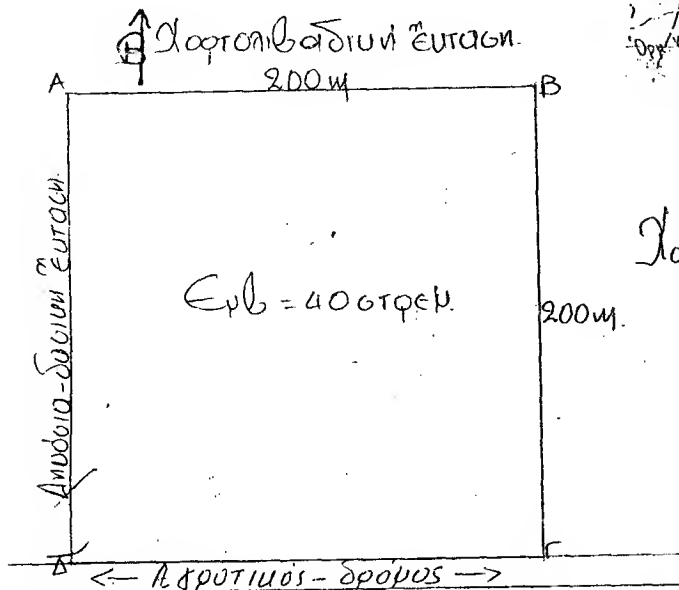 Β Χορτολιβαδική ἔκταση.
200 μ
Α Β
Δημόσια-δασική ἔκταση.
Εμβ = 40 στρεμ.
200 μ.
Χο
Δ Γ
<— Αγροτικός - δρόμος —>